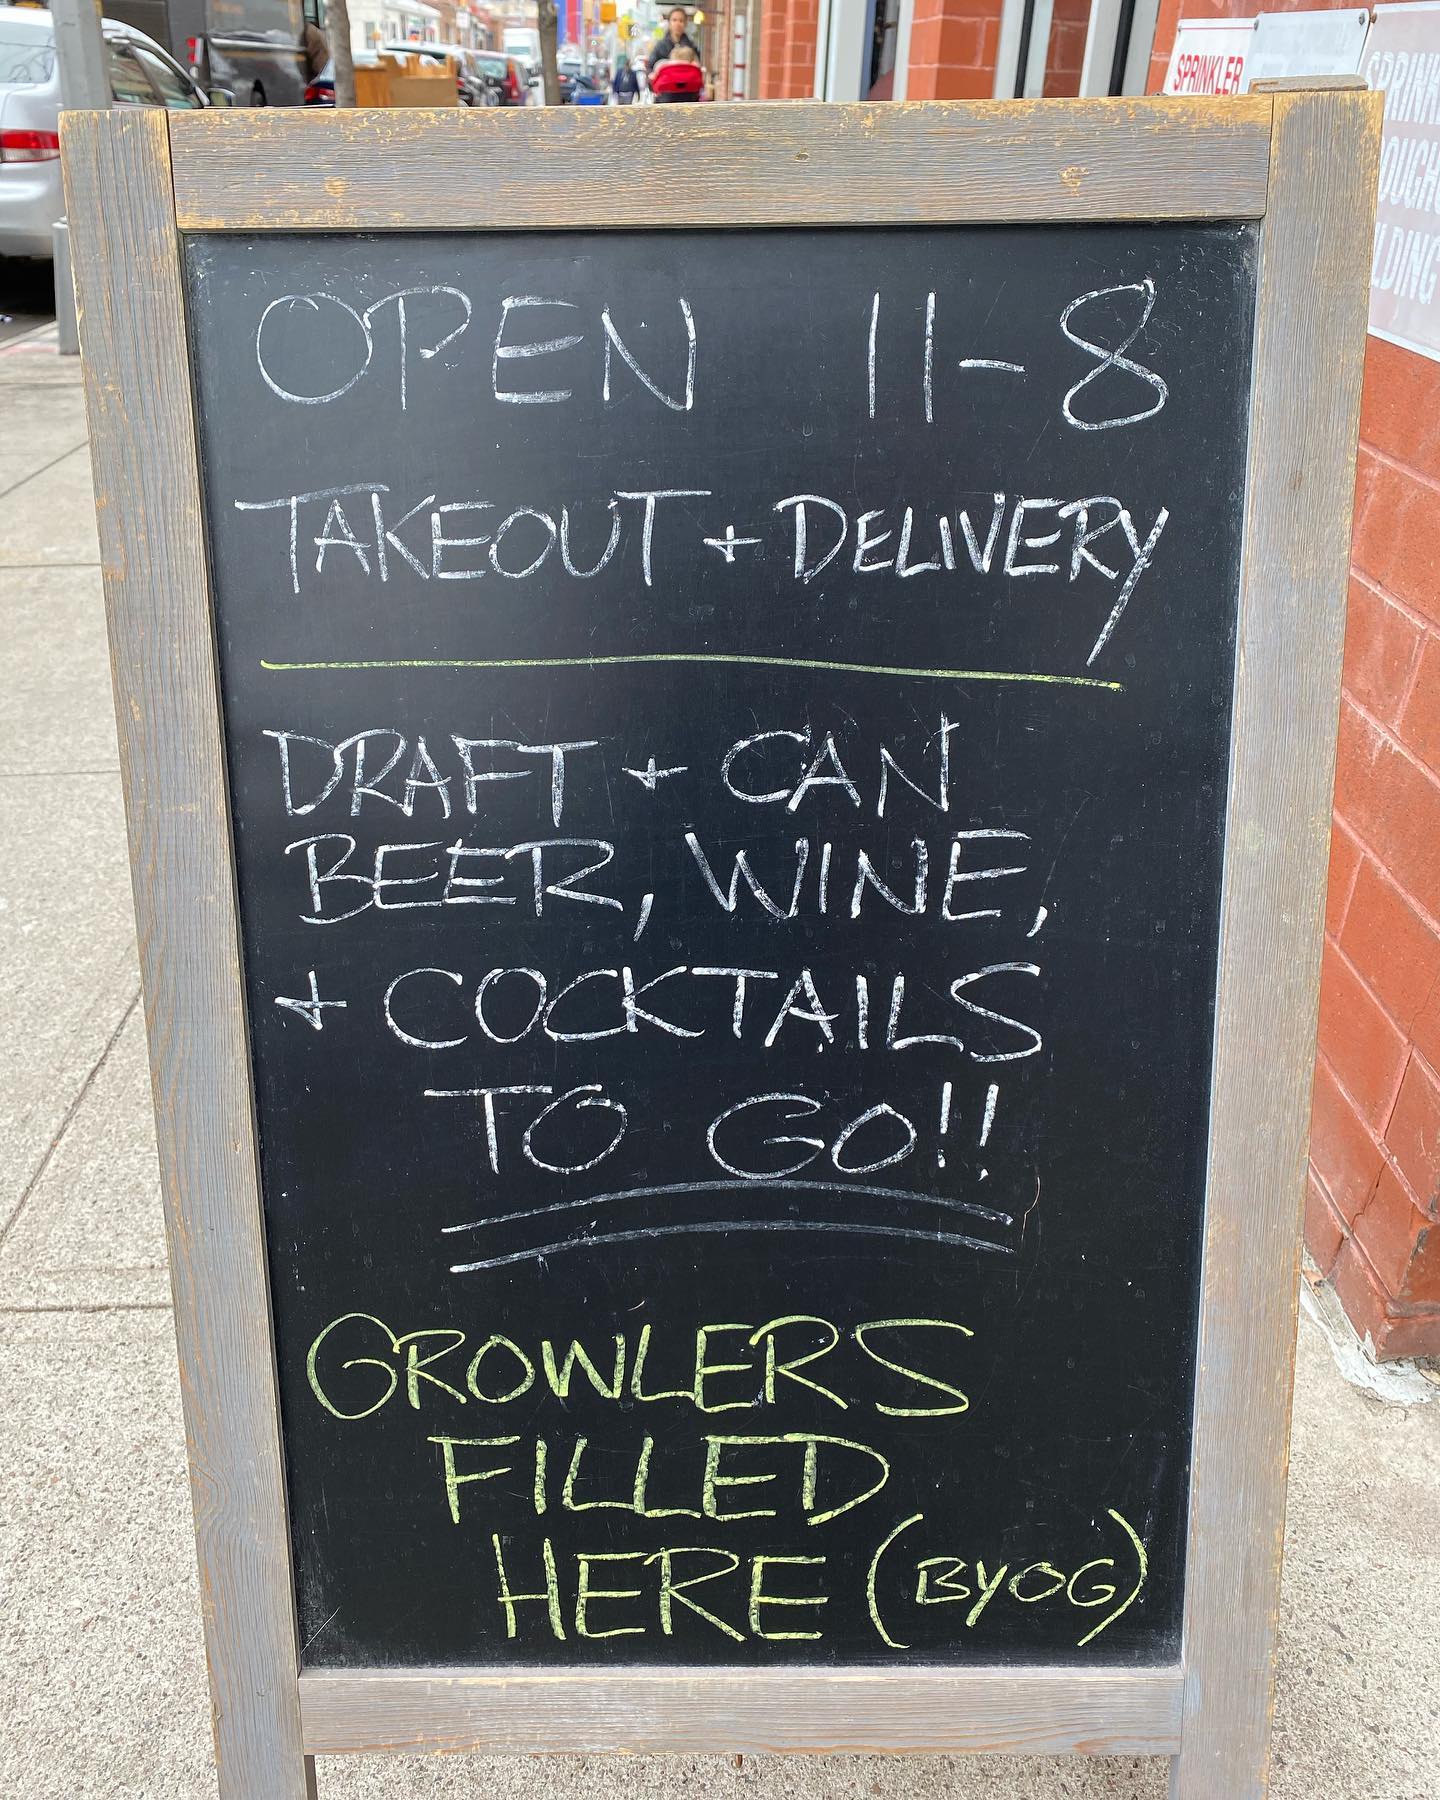 OPEN 11-8
TAKEOUT + DELIVERY
DRAFT + CAN
BEER, WINE,
+ COCKTAILS
TO GO!!
GROWLERS
FILLED
HERE (BYOG)
SPRINKLER